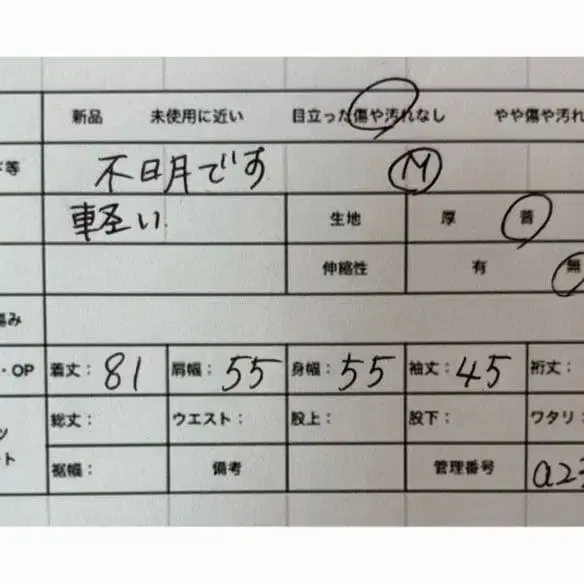 新品 未使用に近い 目立った傷や汚れなし やや傷や汚れ
等 不明です M
軽い 生地 厚 普
伸縮性 有 無
み
・OP 着丈：81 肩幅：55 身幅：55 袖丈：45 裄丈：
総丈： ウエスト： 股上： 股下： ワタリ：
ツ
ト
裾幅： 備考 管理番号 a23